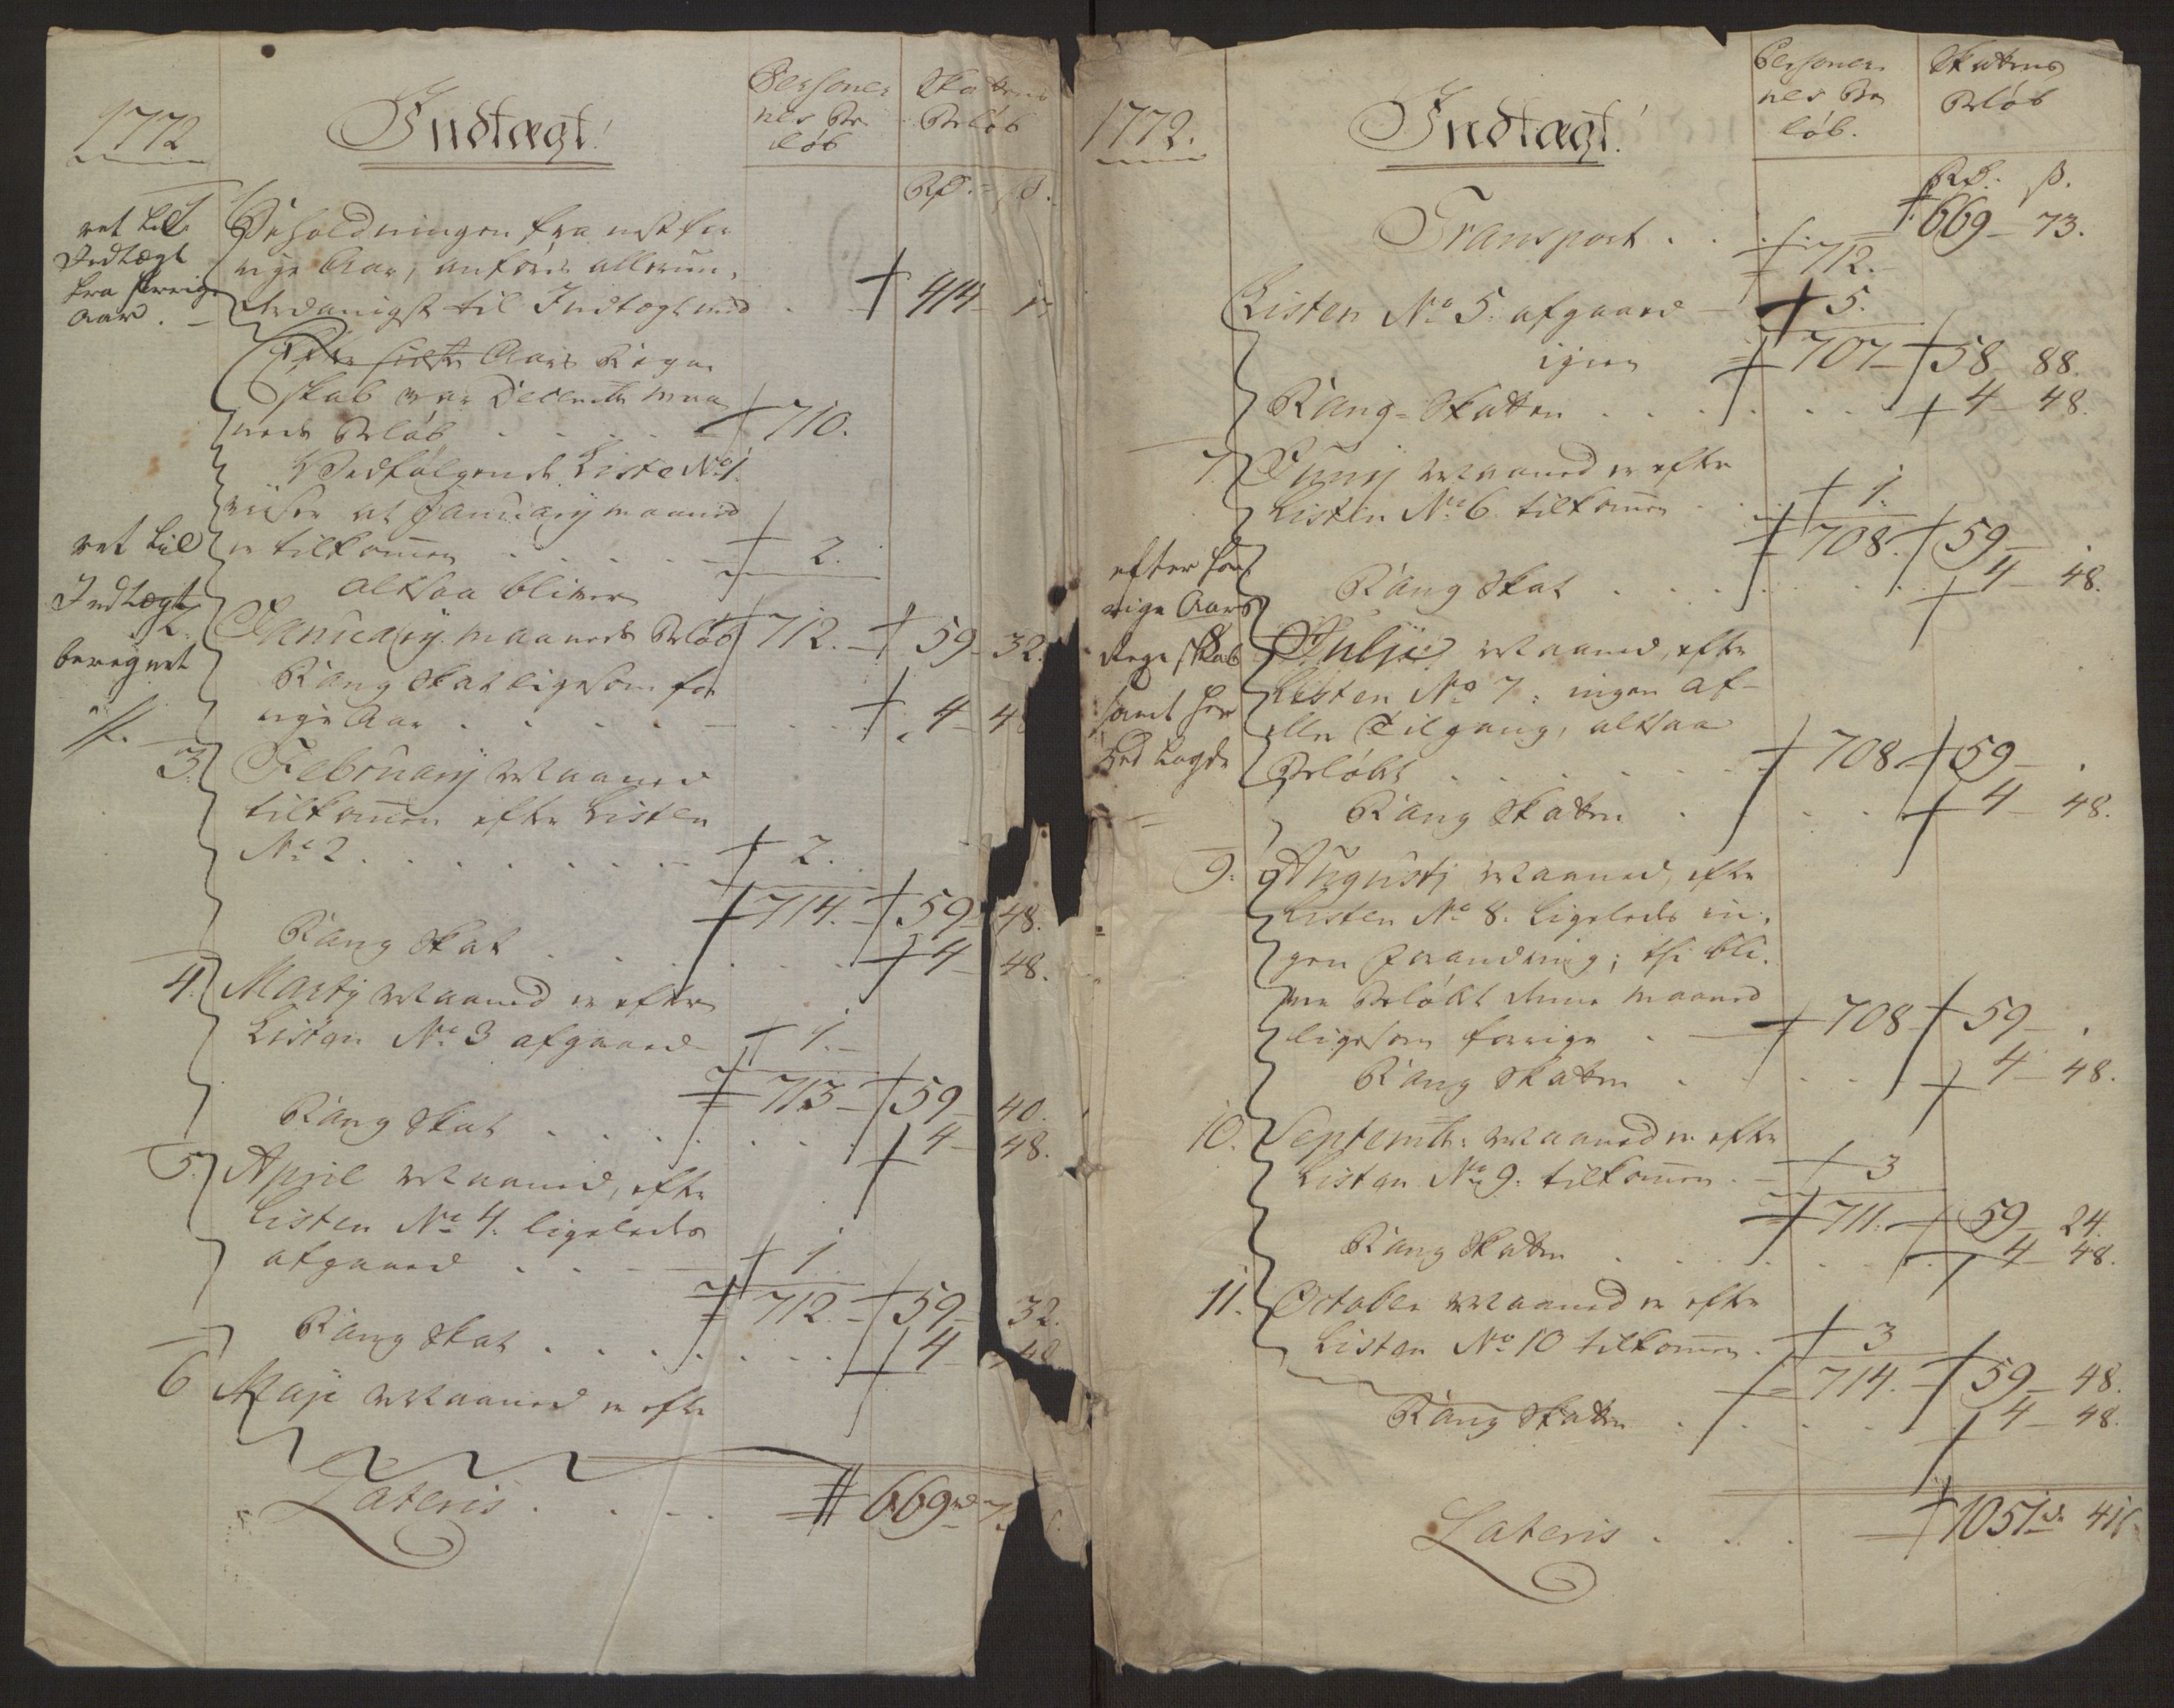 1772
Indtægt!
Personer
nes Be
løb
Skattens
Beløb
Rd. ß.
ret til
Indtægt
fra forrige
Aar.
Beholdningen fra nestfor
rige Aar, anføres allerun,
derdanigst til Indtægt med . . 414 1
Efter sidste Aars Regn
skab var Decembr maa
neds Beløb . . . . 710.
Vedfølgende Liste No 1.
viiser at January maaned
er tilkommen . . . . . 2.
altsaa bliver
ret til
Indtægt
beregnet
2. January maaneds Beløb 712. 59 - 32.
Rang Skat ligesom for
rige Aar . . . . . . 4 - 48
3. February Maaned
tilkommen efter Listen
No 2 . . . . . . . 2.
714. 59 - 48.
Rang Skat . . . . . . 4 - 48.
4. Marty Maaned er efter
Listen No 3 afgaaed 1.
713 59 - 40.
Rang Skat . . . . . . 4 - 48.
5. April Maaned, efter
Listen No 4. ligeleeds
afgaaed . . . 1
712. 59 - 32.
Rang Skat . . . . . . 4 - 48
6 Maji Maaned er efter
Lateris . . . . 669 rd 7
1772.
Indtægt!
Personer
nes Be
løb.
Skattens
Beløb
Rd. ß.
Transport . . . . 669 - 73.
712.
Listen No 5. afgaaed 5.
igien 707 58 - 88.
Rang-Skatten . . . . . . 4 - 48.
7. Junij Maaned er efter
Listen No 6 tilkommen . . 1.
708. 59 - .
Rang Skat . . . . . . 4 - 48.
efter for
rige Aars
Regnskab
samt her
ved lagde
8 Julji Maaned, efter
Listen No 7: ingen af-
eller Tilgang, altsaa
Beløbet . . . . . . 708 59 - .
Rang Skatten . . . . 4 - 48.
9. Augustj Maaned, efter
Listen No 8. Ligeleeds in,
gen Forandring; thi bli,
ver Beløbet denne maaned
ligesom forrige . 708 59 - .
Rang Skatten . . . . 4 - 48.
10. Septembr: Maaned er efter
Listen No 9. tilkommen . 3
711. 59 - 24.
Rang Skatten . . . . . . 4 - 48.
11. October Maaned er efter
Listen No 10 tilkommen . 3
714. 59 - 48.
Rang Skatten . . . . 4 - 48.
Lateris . . . . 1051 rd 41 ß